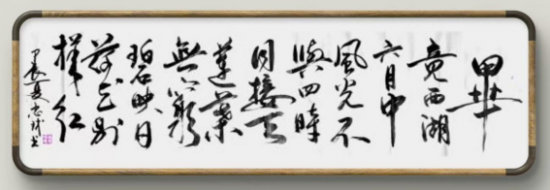 畢
竟西湖
六月中
風光不
與四時
同接天
蓮葉
無窮
碧映日
荷花别
樣红
甲辰夏